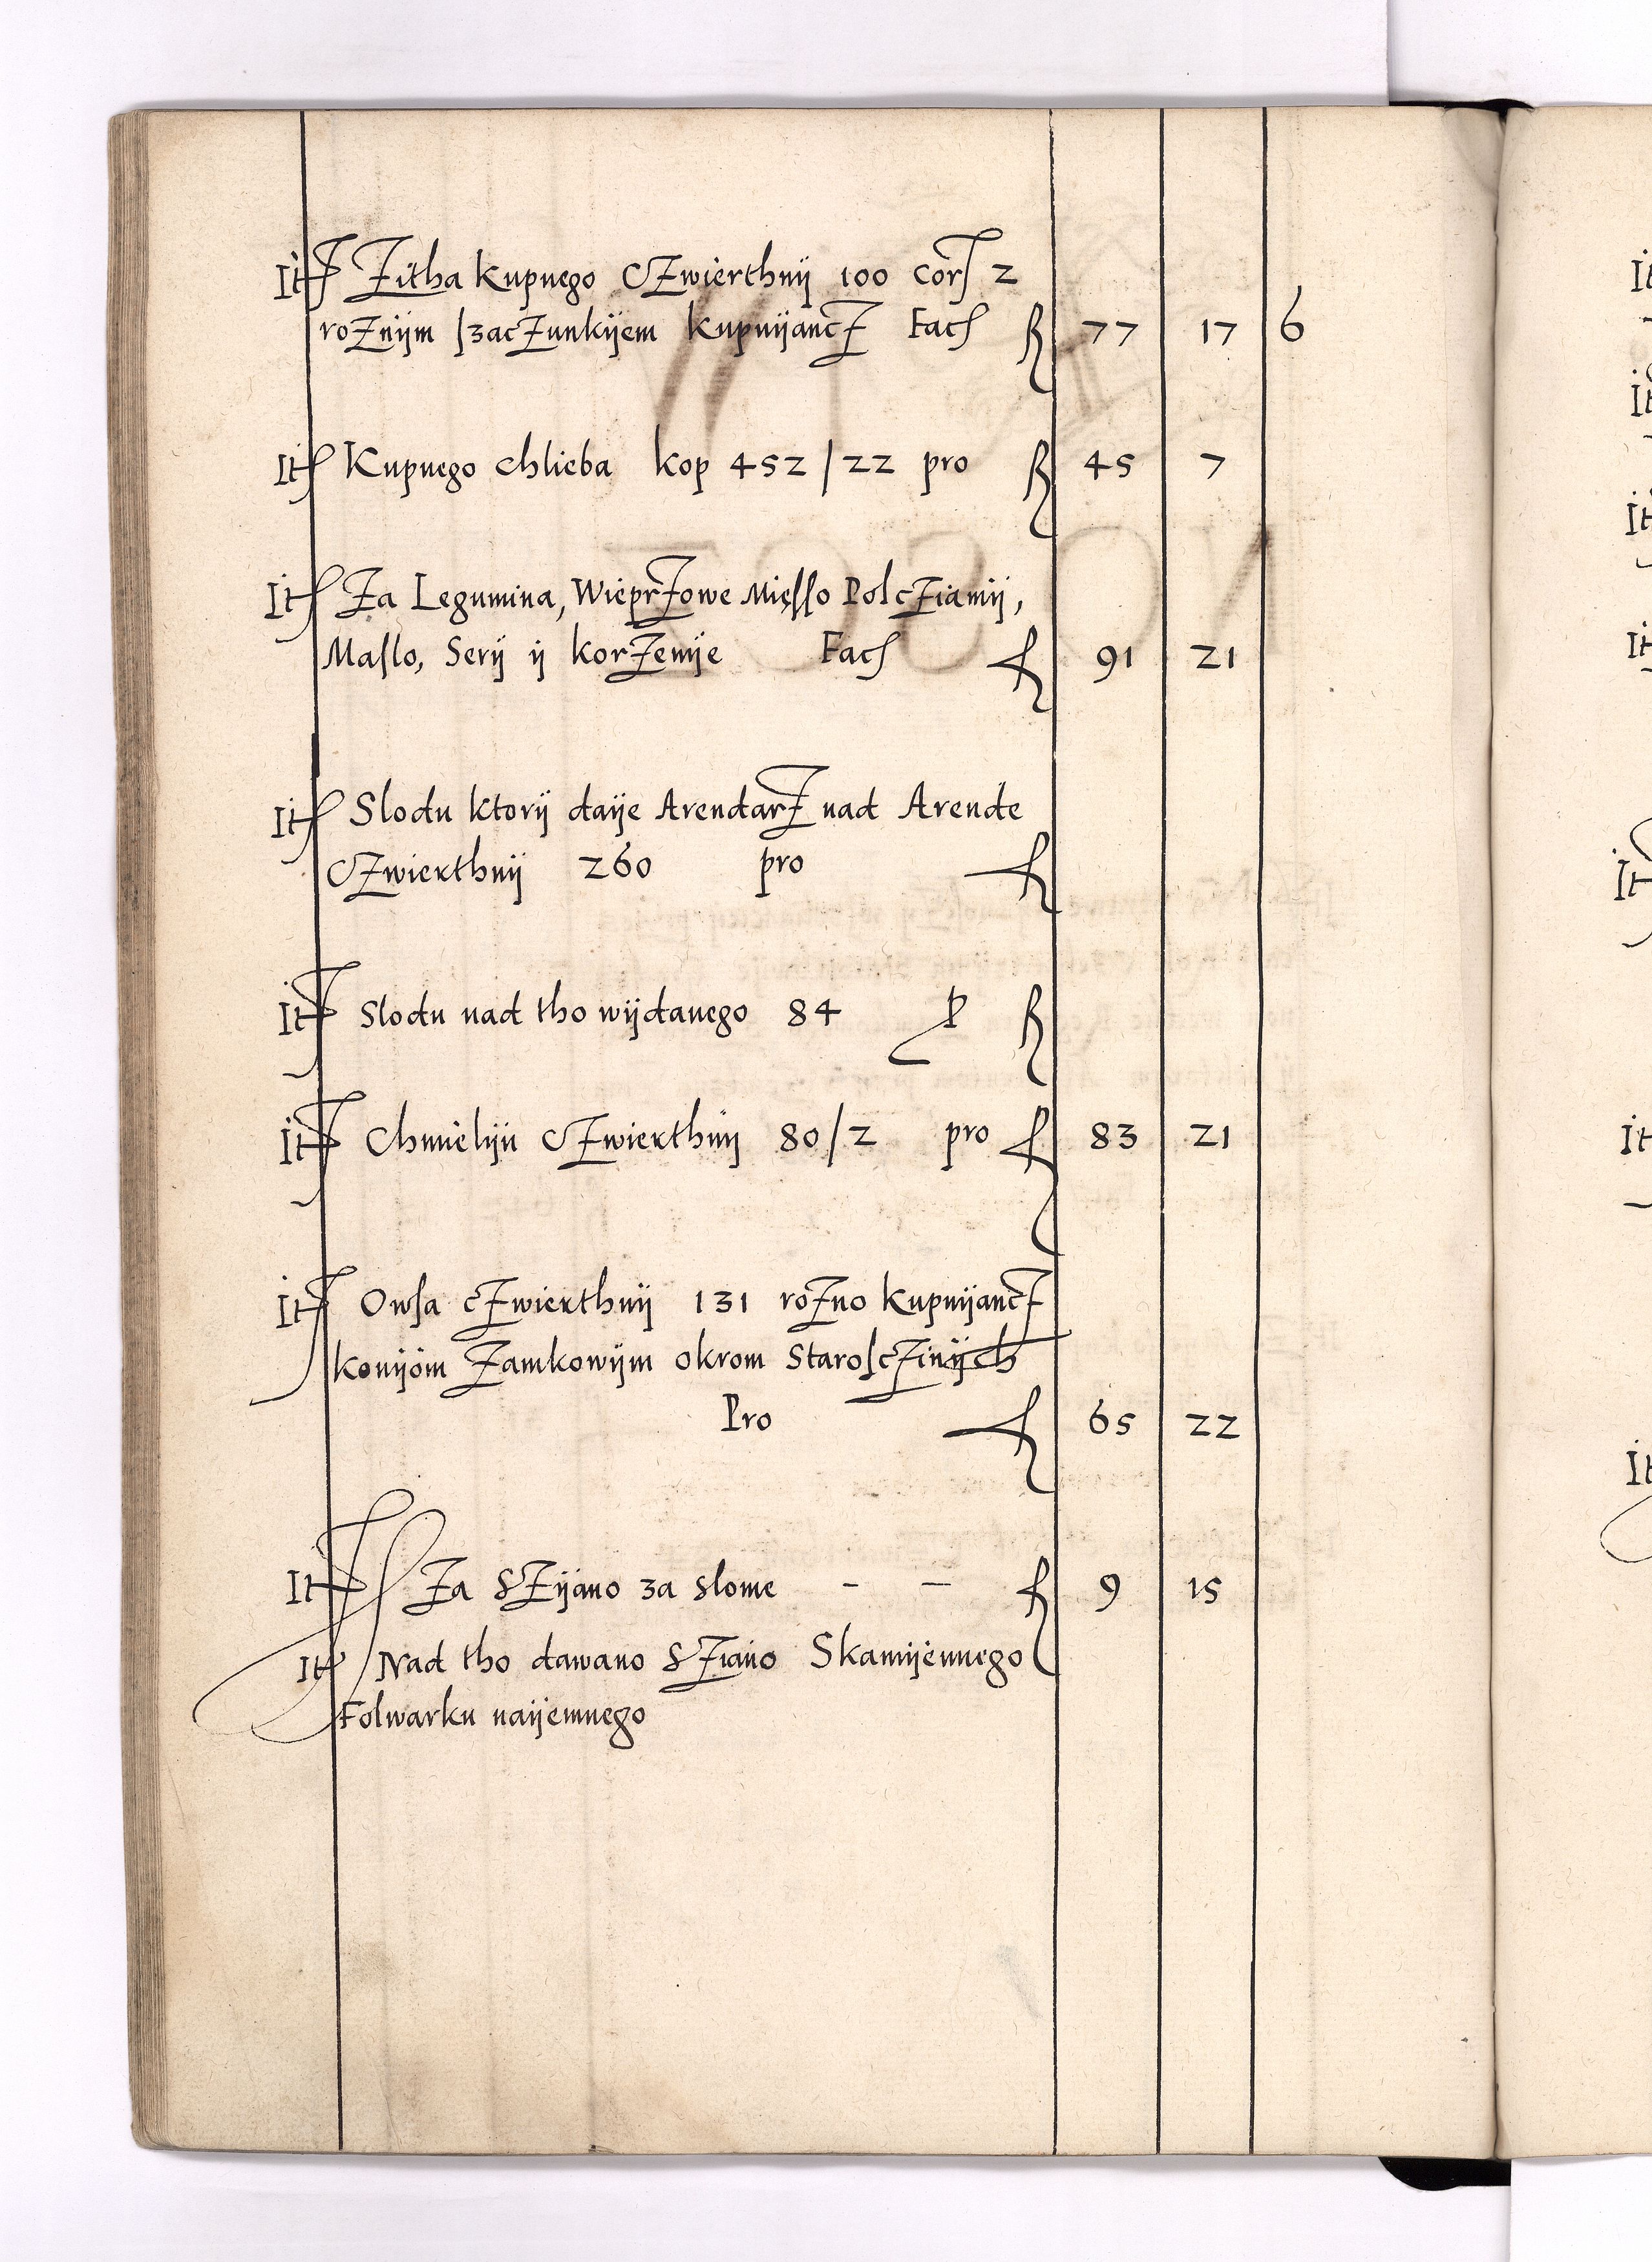 It Zitha kupnego CZwierthnij 100 Corſ 2
roZnijm ſzacZunkijem kupuijancZ Facſ fl 77 17 6
It Kupnego chlieba kop 452/22 pro fl 45 7
It Za Legumina, WieprZowe Mięſſo PolcZiamij,
Maſlo, Serij ij korZenije Facſ fl 91 21
It Slodu ktorij daije ArendarZ nad Arende
CZwierthnij 260 pro fl
It Slodu nad tho wijdanego 84 P fl
It Chmielijn CZwierthnij 80/2 pro fl 83 21
It Owſa cZwierthnij 131 roZno kupuijancZ
konijom Zamkowijm okrom StaroſcZinijch
Pro fl 65 22
It Za SZijano za slome - - fl 9 15
It Nad tho dawano SZiano Skamijennego
Folwarku naijemnego